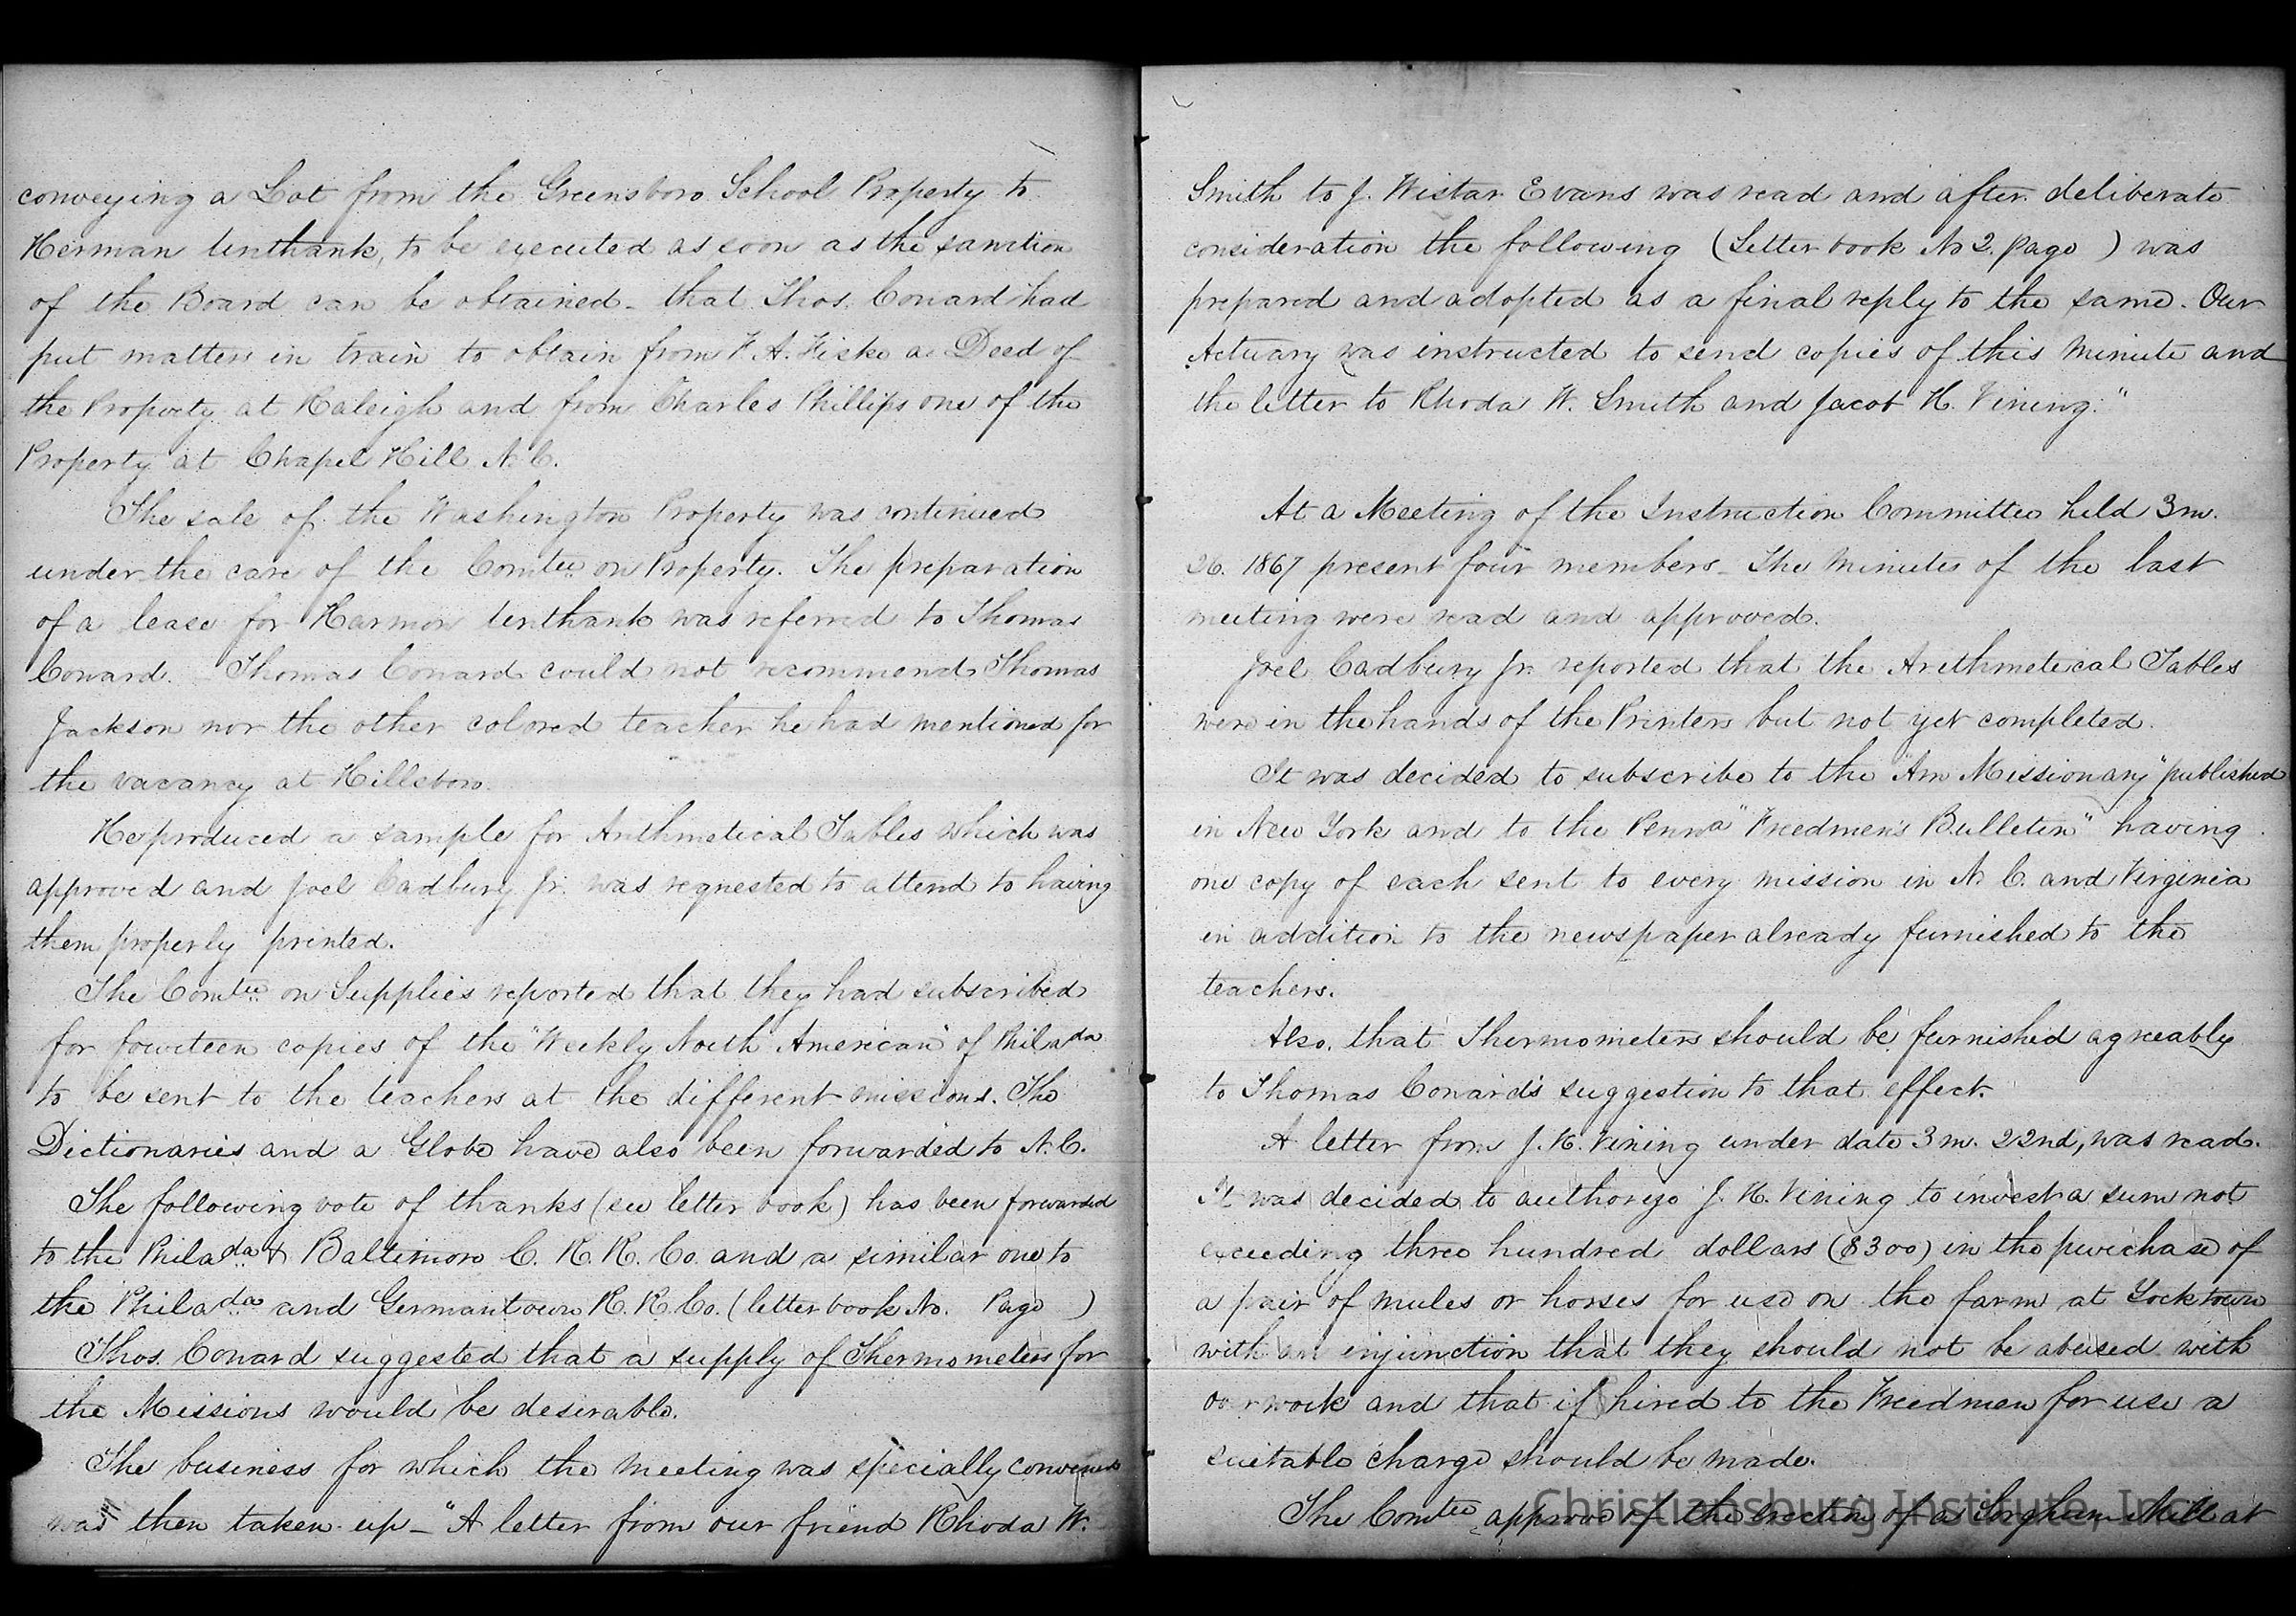 conveying a Lot from the Greensboro School Property to
Herman Unthank, to be executed as soon as the sanction
of the Board can be obtained - that Thos. Conard had
put matters in train to obtain from F. A. Fiske a Deed of
the Property at Raleigh and from Charles Phillips one of the
Property at Chapel Hill N. C.
The sale of the Washington Property was continued
under the care of the Comtee on Property. The preparation
of a lease for Harmon Unthank was referred to Thomas
Conard. Thomas Conard could not recommend Thomas
Jackson nor the other colored teacher he had mentioned for
the vacancy at Hillsboro.
He produced a sample for Arithmetical Tables which was
approved and Joel Cadbury Jr. was requested to attend to having
them properly printed.
The Comtee on Supplies reported that they had subscribed
for fourteen copies of the "Weekly North American" of Philada
to be sent to the teachers at the different missions. The
Dictionaries and a Globe have also been forwarded to N. C.
The following vote of thanks (see letter book) has been forwarded
to the Philada & Baltimore C. R. R. Co. and a similar one to
the Philada and Germantown R. R. Co. (letter book No. Page )
Thos. Conard suggested that a supply of Thermometers for
the Missions would be desirable.
The business for which the meeting was specially convened
was then taken up - "A letter from our friend Rhoda W.
Smith to J. Wistar Evans was read and after deliberate
consideration the following (Letter book No 2. page ) was
prepared and adopted as a final reply to the same. Our
Actuary was instructed to send copies of this Minute and
the letter to Rhoda W. Smith and Jacob H. Vining."
At a Meeting of the Instruction Committee held 3m.
26. 1867 present four members - The Minutes of the last
meeting were read and approved.
Joel Cadbury Jr. reported that the Arithmetical Tables
were in the hands of the Printers but not yet completed.
It was decided to subscribe to the "Am Missionary" published
in New York and to the Penna "Freedmen's Bulletin" having
one copy of each sent to every mission in N. C. and Virginia
in addition to the newspaper already furnished to the
teachers.
Also, that Thermometers should be furnished agreeably
to Thomas Conard's suggestion to that effect.
A letter from J. H. Vining under date 3 m. 22nd, was read.
It was decided to authorize J. H. Vining to invest a sum not
exceeding three hundred dollars ($300) in the purchase of
a pair of mules or horses for use on the farm at Yorktown
with an injunction that they should not be abused with
over work and that if hired to the Freedmen for use a
suitable charge should be made.
The Comtee approve of the erection of a Sorghum Mill at
Christiansburg Institute, Inc.